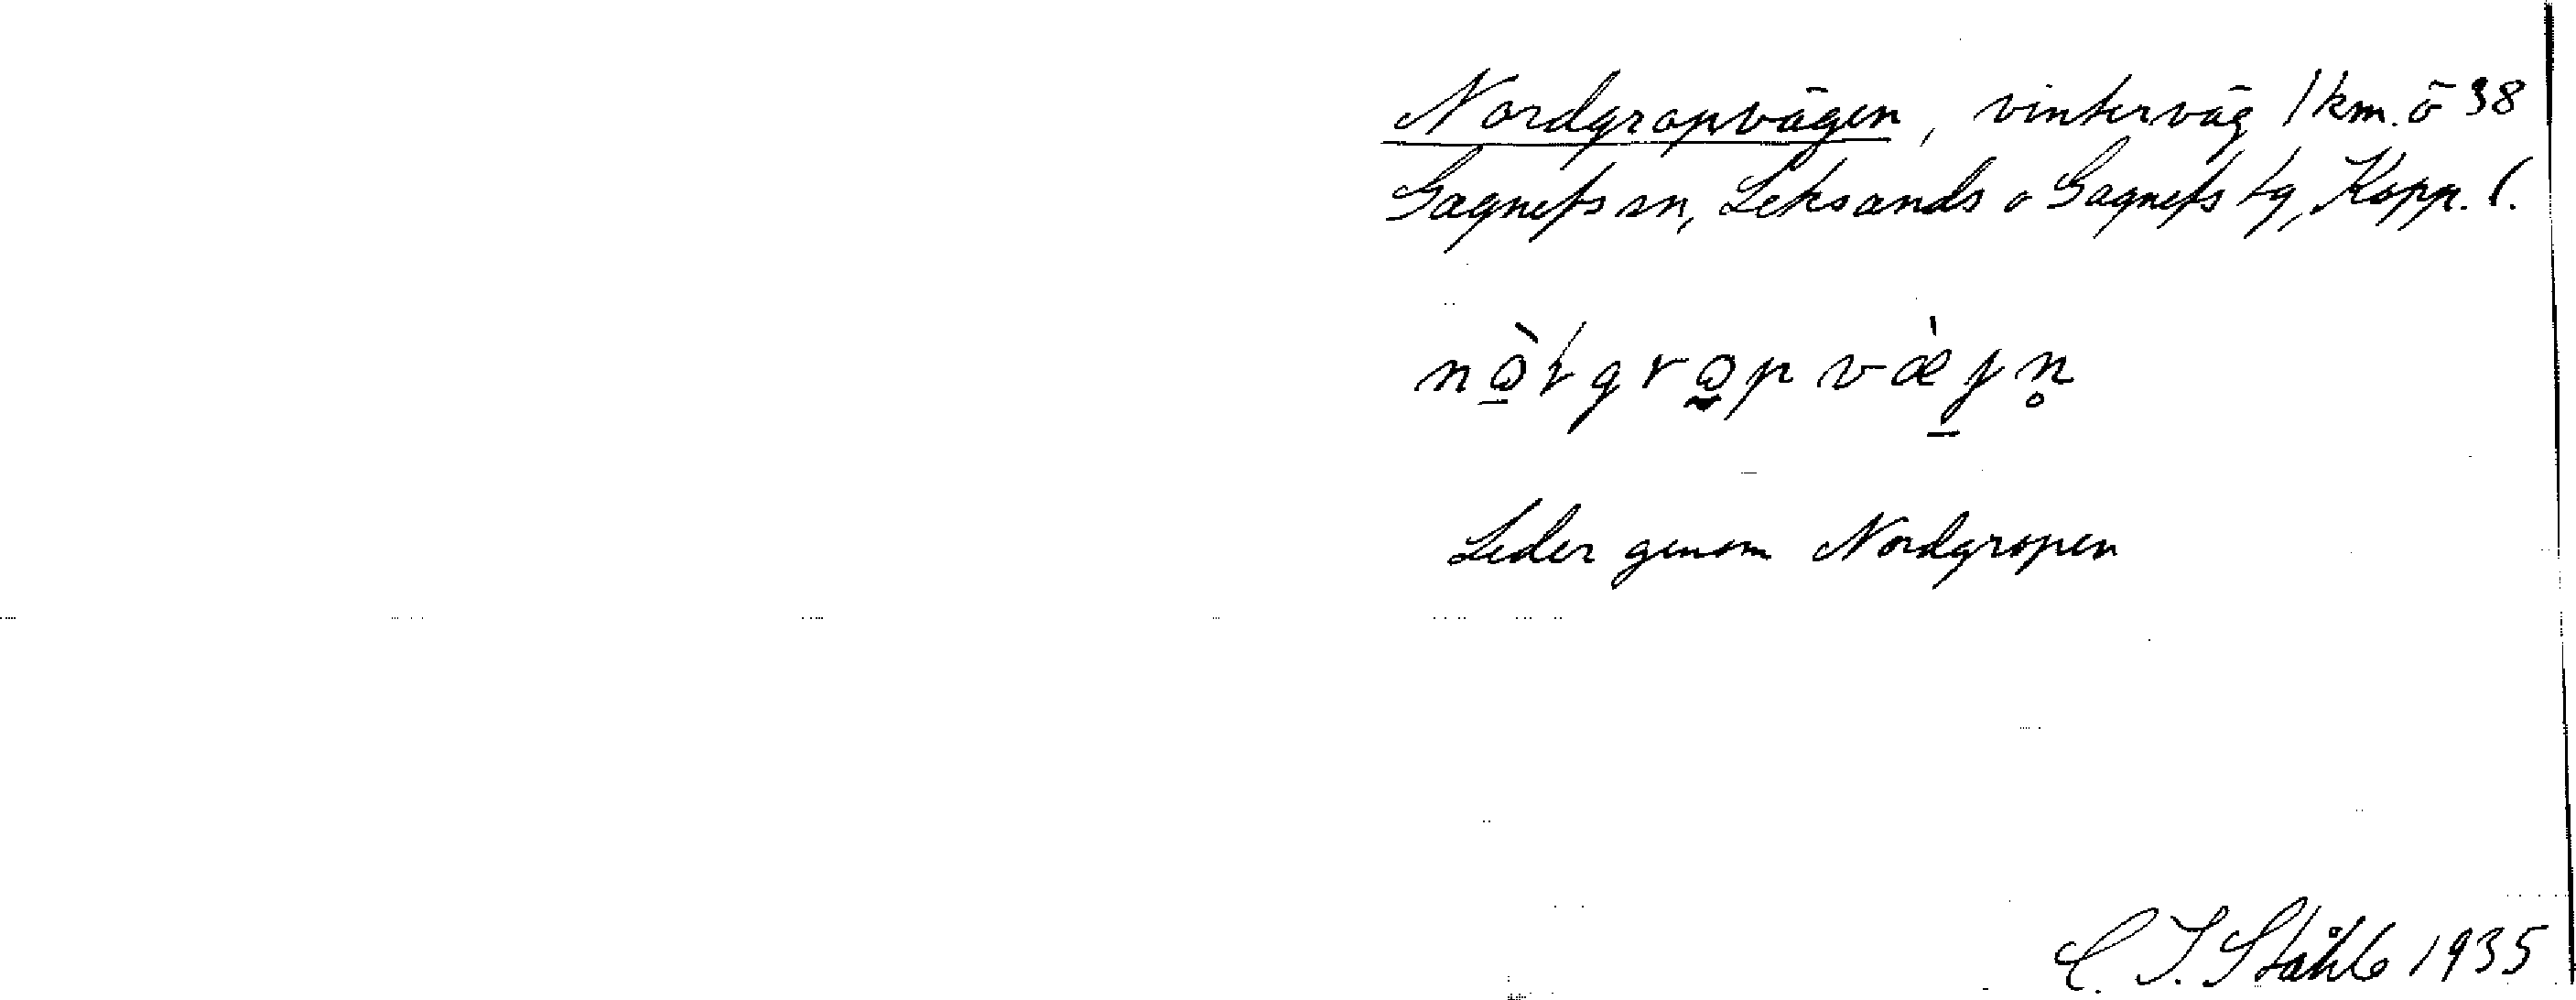 Nordgropvägen, vinterväg 1 km. ö 38
Gagnefs sn, Leksands o Gagnefs tg, Kopp. l.
nò̱tgro̰pvæ̀j̱n̥
Leder genom Nordgropen
C. I. Ståhle 1935